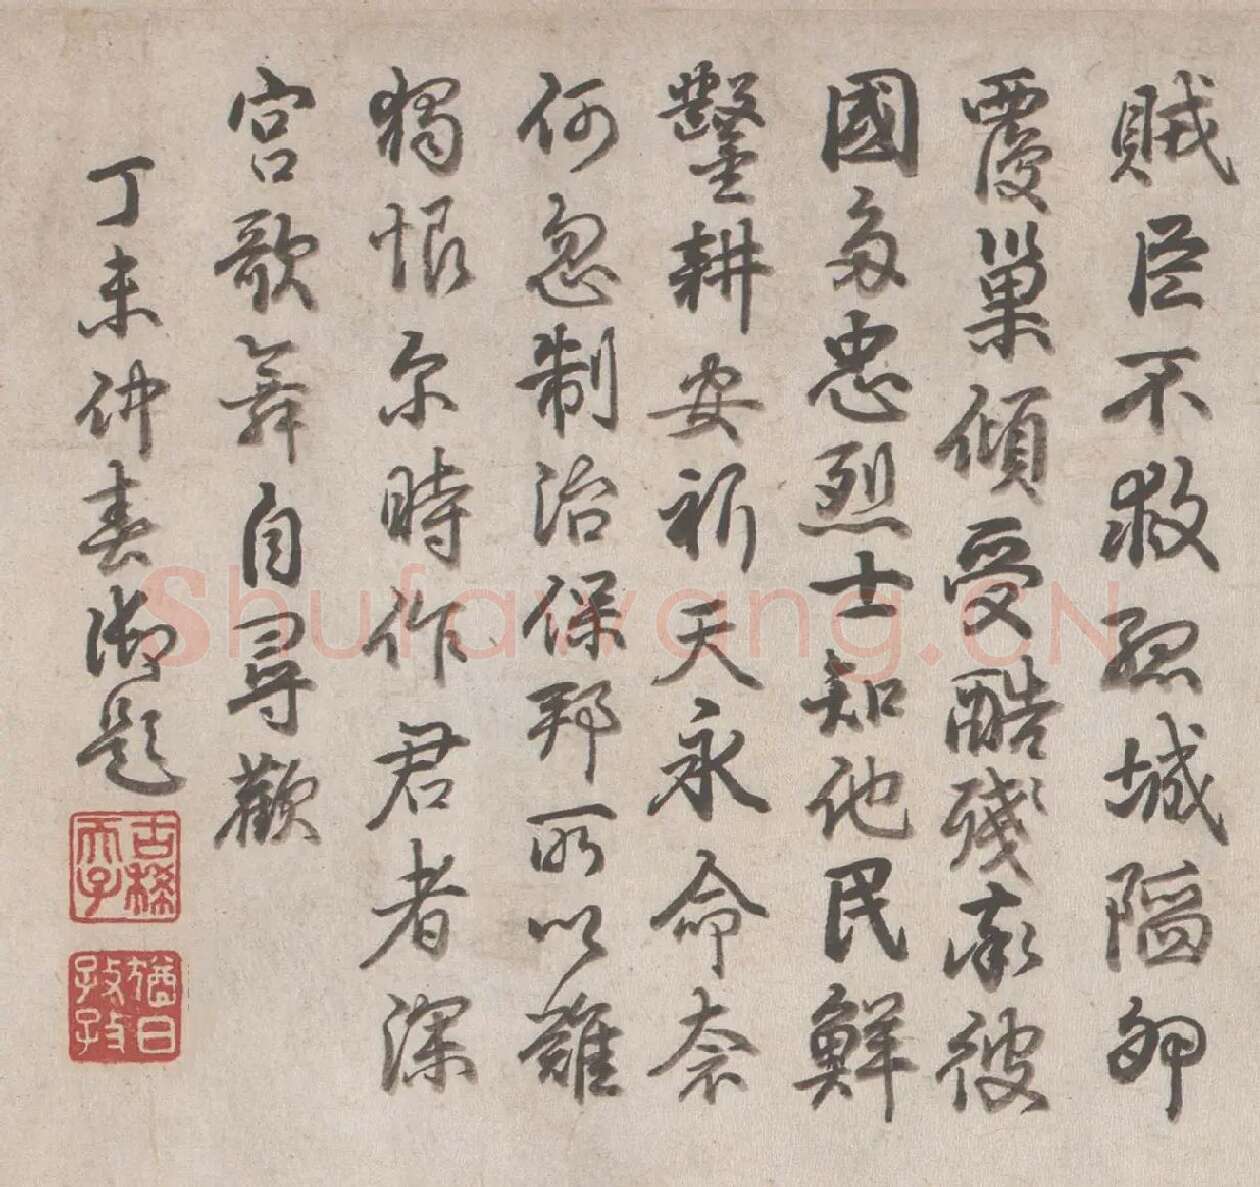 賊臣不救孤城隔卵
覆巢傾受酷殘嘉彼
國多忠烈士知他民鮮
鑿耕安祈天永命奈
何忽制治保邦所以難
獨恨尔時作君者深
宮歌舞自尋歡
丁未仲春御題
古稀天子
猶日孜孜
Shufawang.CN